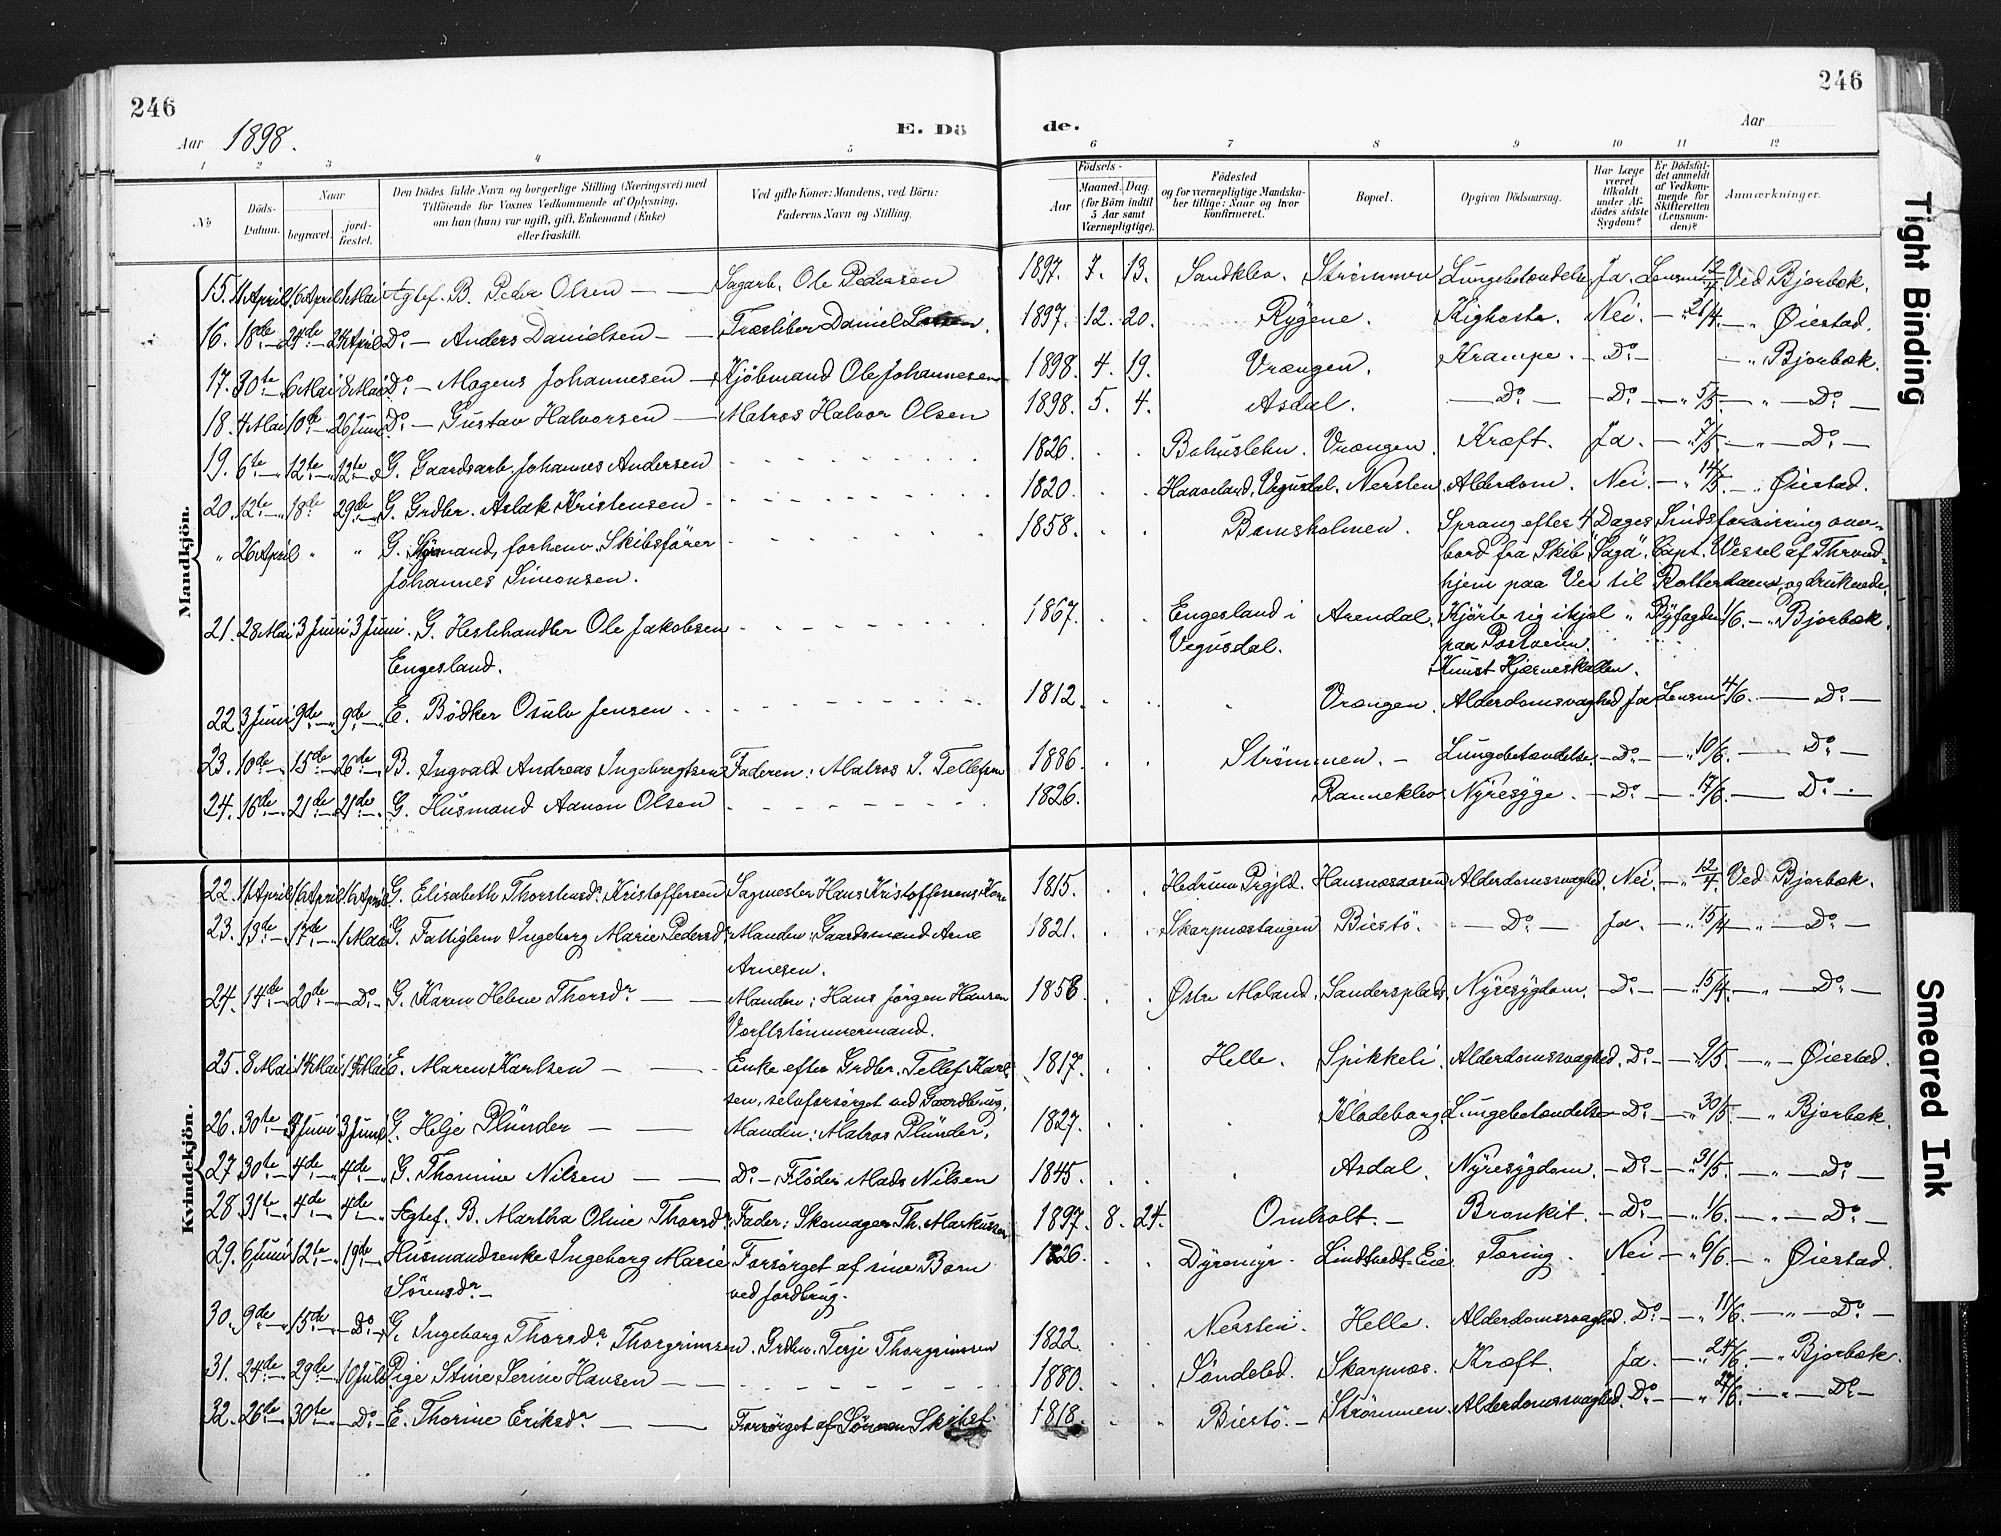 246
246
Aar 1898.
E. Dö
de.
Aar
1 2 3 4 5 6 7 8 9 10 11 12
No
Döds-Datum.
Naar
begravet.
jord-fæstet.
Den Dödes fulde Navn og borgerlige Stilling (Næringsvei) med
Tilföiende for Voxnes Vedkommende af Oplysning,
om han (hun) var ugift, gift, Enkemand (Enke)
eller fraskilt.
Ved gifte Koner: Mandens, ved Börn:
Faderens Navn og Stilling.
Födsels-
Aar
Maaned. Dag.
(for Börn indtil
5 Aar samt
Værnepligtige).
Födested
og for værnepligtige Mandska-
ber tillige: Naar og hvor
konfirmeret.
Bopæl.
Opgiven Dödsaarsag.
Har Læge
været
tilkaldt
under Af-
dödes sidste
Sygdom?
Er Dödsfal-
det anmeldt
af Vedkom-
mende for
Skifteretten
(Lensman-
den)?
Anmærkninger.
Mandkjön.
15. 11 April 16 April 1 Mai Ægtef. B. Peder Olsen — — Sagarb. Ole Pedersen 1897. 7. 13. Sandklev. Strømmen Lungebetændelse Ja. Lensm. 12/4 Ved Bjorbæk.
16. 18de 24de 24 April Do — Anders Danielsen — — Træsliber Daniel 1897. 12. 20. Rygene. Kighoste. Nei. — " 21/4 — " Øiestad.
17. 30te 6 Mai 8 Mai Do — Mogens Johannesen — Kjöbmand Ole Johannesen 1898. 4. 19. Vrængen. Krampe. — Do — — " Bjorbæk.
18. 4 Mai 10de 26 Juni Do — Gustav Halvorsen — Matros Halvor Olsen 1898. 5. 4. Asdal. — Do — — Do — — " 5/5 — " — Do —
19. 6te 12te 12te G. Gaardsarb. Johannes Andersen 1826. Bahuslehn. Vrængen. Kræft. Ja. — " 7/5 — " — Do —
20. 12te 18de 29de G. Grdbr. Aslak Kristensen 1820. Haaveland, Vegusdal. Nersten. Alderdom. Nei. — " 14/5 — " Øiestad.
" 26 April " " G. Sömand, forhenv. Skibsförer 1858. Bomsholmen. Sprang efter 4 Dages Sindsforvirring over-
Johannes Simonsen. bord fra Skib "Saga". Capt. Wessel af Thrond-
hjem paa Vei til Rotterdam, og druknede.
21. 28 Mai 3 Juni 3 Juni. G. Hestehandler Ole Jakobsen 1867. Engesland i Arendal. Kjörte sig ihjel " Byfogden 1/6. — " Bjorbæk.
Engesland. Vegusdal. paa Postveien.
Knust Hjerneskallen.
22 3 Juni 9de 9de E. Bödker Osulv Jensen 1812. " Vrængen. Alderdomssvaghed Ja Lensm. 4/6. — Do —
23. 10de 15de 26de B. Ingvald Andreas Ingebregtsen Faderen: Matros I. Tellefsen 1886. Strømmen. — Lungebetændelse — Do — — " 10/6. — Do —
24. 16de 21de 21de G. Husmand Aanon Olsen 1826. Ranneklev Nyresyge. — Do — — " 17/6 — Do —
Kvindekjön.
22. 11 April 16 April 16 April G. Elisabeth Thorstensdr. Kristoffersen Sagmester Hans Kristoffersens Kone 1815. Hedrum Prgjld. Hansnæsaasen Alderdomssvaghed. Nei. — " 12/4. Ved Bjorbæk.
23. 13de 17de 1 Mai G. Fattiglem Ingeborg Marie Pedersdr Manden: Gaardsmand Arne 1821. Skarpnæstangen Biestö. — Do — Ja. — " 15/4 — " — Do —
Arnesen.
24. 14de 20de — Do — G. Karen Helene Thorsdr — — Manden: Hans Jörgen Hansen 1856. Østre Moland. Sandersplads. Nyresygdom. — Do — — " 15/4. — " — Do —
Værftstömmermand.
25. 8 Mai 14 Mai 14 Mai E. Maren Karlsen — — Enke efter Grdbr. Tellef Karl- 1817. Helle. Spikkeli. Alderdomssvaghed. Do — " 9/5 — " Øiestad.
sen, selvforsörget ved Gaardbrug.
26. 30te 3 Juni 3 Juni G. Helje Plünder — — Manden: Matros Plünder. 1827. " Klodeborg. Lungebetændelse — Do — — " 30/5. — " Bjorbæk.
27 30te 4de 4de G. Thomine Nilsen — — Do — Flöder Mads Nilsen 1845. " Asdal. Nyresygdom. — Do — — " 31/5. — " — Do —
28. 31te 4de 4de Ægtef. B. Martha Oline Thorsdr. Fader: Skomager Th. Markussen 1897. 8. 24. Omholt. — Bronkit. — Do — — " 1/6. — " — Do —
29. 6 Juni 12te 19de Husmandsenke Ingeborg Marie Forsörget af sine Børn 1826. Dyremyr — Lindtvedt Eie Tæring. Nei — " 6/6 — " Øiestad.
Sörensdr — ved Jordbrug.
30. 9de 15de — Do — G. Ingeborg Thorsdr Thorgrimsen. Grdbr. Terje Thorgrimsen 1822. Nersten. Helle. Alderdomssvaghed. Do — — " 11/6. — " — Do —
31. 24de 29de 10 Juli Pige Stine Serine Hansen — — 1880. Söndeled. Skarpnæs. Kræft. Ja. — " 24/6. — " Bjorbæk.
32. 26te 30te — Do — E. Thorine Eriksdr — — Forsörget af Sönnen 1818. Biestö. — Strømmen. Alderdomssvaghed. Do — — " 27/6. — " — Do —
Tight Binding
Smeared Ink